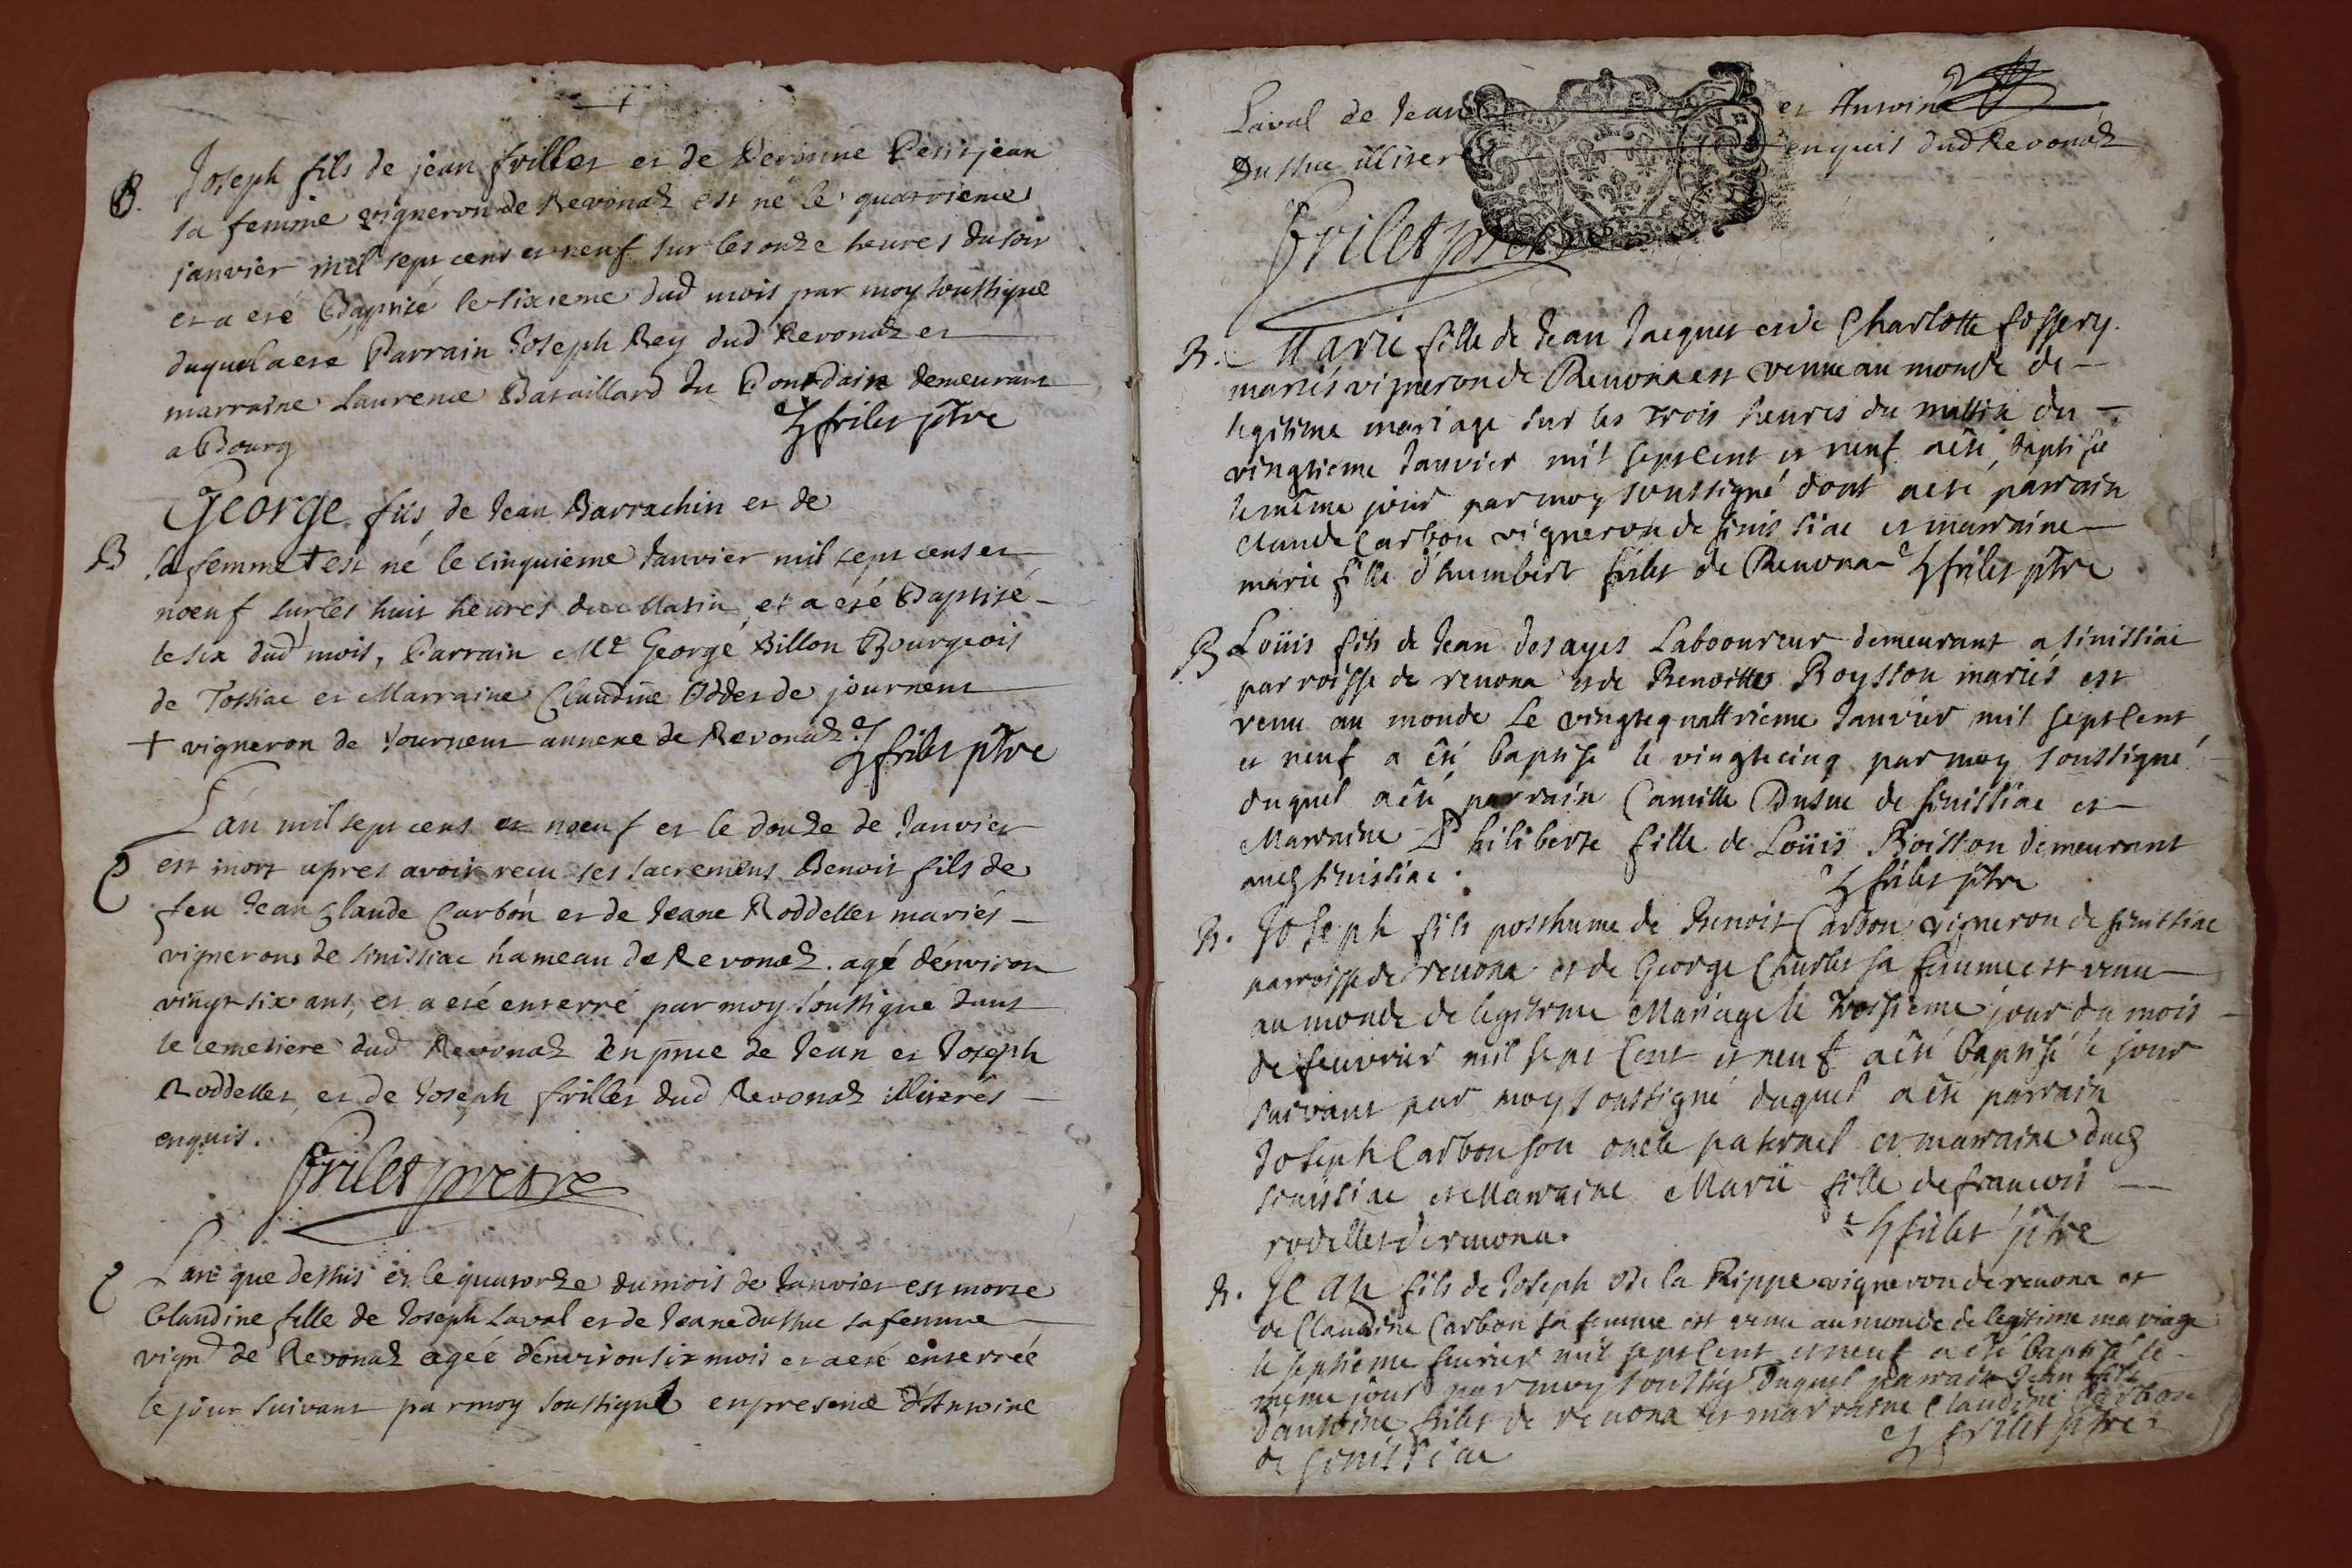 B. Joseph fils de jean frillet et de Peronne Petitjean
sa femme vigneron de Revonaz est né le quatrieme
janvier mil sept cent et neuf sur les onze heures du soir
et a eté Baptisé le sixieme dud mois par moy soussigné
duquel a eté Parrain Joseph Rey dud Revonaz et
marraine Laurence Bataillard du demeurant
a Bourg
frilet ptre
George fils de Jean Barrachin et de
B sa femme + est né le cinquieme Janvier mil sept cens et
noeuf sur les huit heures du Matin, et a eté Baptisé
le six dud mois, Parrain Mr George Billon Bourgeois
de Tossiac et Marraine Claudine Oddet de journens
+ vigneron de Journens annexe de Revonaz
frilet ptre
L'an mil sept cens et noeuf et le douze de Janvier
est mort apres avoir reçu ses sacremens Benoit fils de
feu Jean Claude Carbon et de Jeane Roddettet mariés
vignerons de sinissiac hameau de Revonaz. agé d'environ
vingt six ans, et a eté enterré par moy soussigné dans
le cemetiere dud Revonaz En pnce de Jean et Joseph
Roddettet, et de Joseph frillet dud Revonaz illiterés
enquis.
frilet pretre
L'an que dessus et le quatorze du mois de Janvier est morte
Claudine fille de Joseph Laval et de Jeane dussuc sa femme
vignd de Revonaz ageé d'environ six mois et a eté enterreé
le jour suivant par moy soussigné en presence d'Antoine
Laval de Jean et Antoine
Dussuc illiter enquis dud Revonaz
frilet pretre
B. Marie fille de Jean Jacquet et de Charlotte fossery
mariés vigneron de Revona est venue au monde de
legitime mariage sur les trois heures du mattin du
vingtieme Janvier mil sept cent et neuf a été baptisée
le même jour par moy soussigné dont a eté parrain
claude Carbon vigneron de sinissiac et marraine
marie fille d'humbert frilet de Revona frilet ptre
B Loüis fils de Jean desayes Laboureur demeurant a sinissiac
parroisse de revona et de Benoitte Boysson mariés est
venu au monde le vingt quattrieme Janvier mil sept cent
et neuf a été baptisé le vingt cinq par moy soussigné
duquel a été parrain Camille Dusuc de sinissiac et
Marraine Philiberte fille de Loüis Boisson demeurant
sinissiac.
frilet ptre
B. Joseph fils posthume de Benoit Carbon vigneron de sinissiac
parroisse de revona et de George Charlet sa femme est venu
au monde de legitime Mariage le troisieme jour du mois
de feuvrier mil sept cent et neuf a été baptisé le jour
suivant par moy soussigné duquel a été parrain
Joseph Carbon son oncle paternel et marraine
sinissiac et Marraine Marie fille de francois
rodettet de revona.
frilet ptre
B. Jean fils de Joseph de la Rippe vigneron de revona et
de Claudine Carbon sa femme est venu au monde de legitime mariage
le septieme fevrier mil sept cent et neuf a été baptisé le
meme jour par moy soussig duquel parrain Jean fils
d'antoine frilet de revona et marraine Claudine Carbon
de sinissiac
frilet ptre